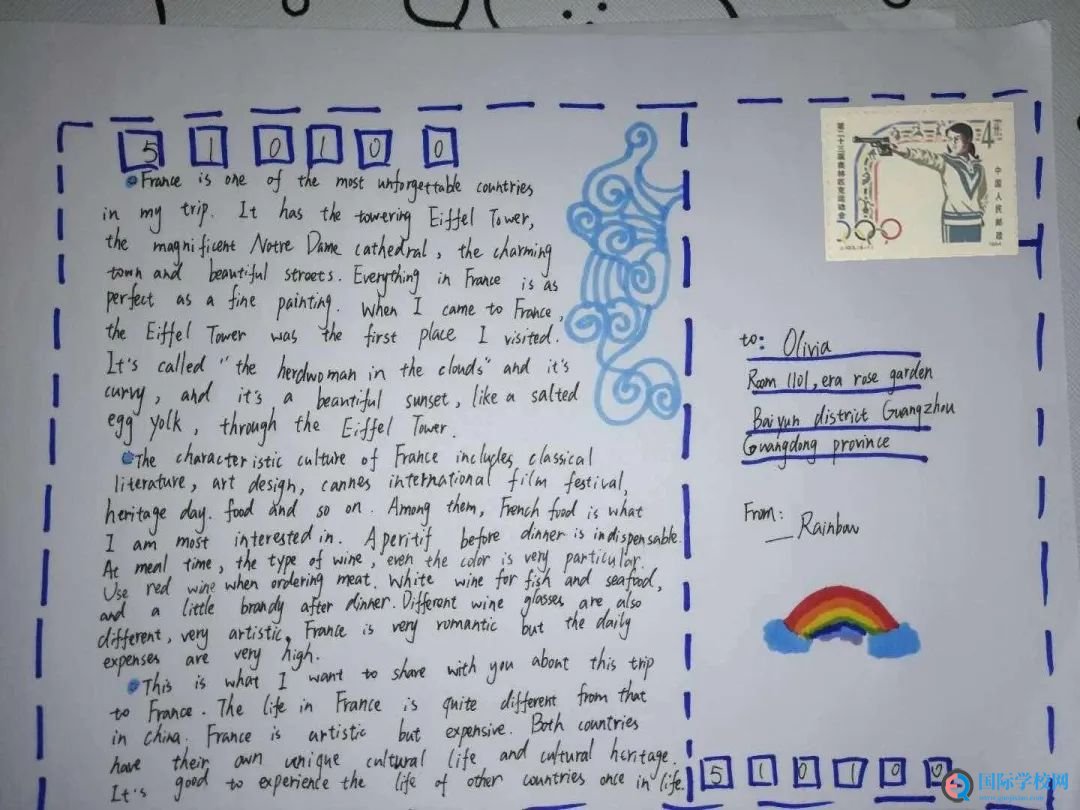 5 1 0 1 0 0
France is one of the most unforgettable countries
in my trip. It has the towering Eiffel Tower,
the magnificent Notre Dame cathedral, the charming
town and beautiful streets. Everything in France is as
perfect as a fine painting. When I came to France,
the Eiffel Tower was the first place I visited.
It's called "the herdwoman in the clouds" and it's
curvy, and it's a beautiful sunset, like a salted
egg yolk, through the Eiffel Tower.
The characteristic culture of France includes classical
literature, art design, cannes international film festival,
heritage day. food and so on. Among them, French food is what
I am most interested in. Aperitif before dinner is indispensable.
At meal time, the type of wine, even the color is very particular.
Use red wine when ordering meat. White wine for fish and seafood,
and a little brandy after dinner. Different wine glasses are also
different, very artistic. France is very romantic but the daily
expenses are very high.
This is what I want to share with you about this trip
to France. The life in France is quite different from that
in China. France is artistic but expensive. Both countries
have their own unique cultural life and cultural heritage.
It's good to experience the life of other countries once in life.
4分
第二十三届奥林匹克运动会
中国人民邮政
1984
to: Olivia
Room 1101, era rose garden
Baiyun district Guangzhou
Guangdong province
From: Rainbow
5 1 0 1 0 0
国际学校网